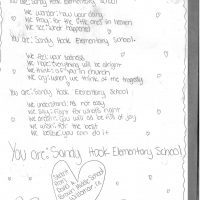 You are: Sandy Hook Elementary School
We wonder: how your doing
We pray: for the little ones in heaven
We see: what happened
You are: Sandy Hook Elementary School.
We feel: your sadness
We hope: everything will be alright
We think: of you in church
We cry: when we think of the tragedy
You are: Sandy Hook Elementary School
We understand: its not easy
We say: fight for what's right
We dream: you will all be full of joy
We wish: for the best
We believe: you can do it
You are: Sandy Hook Elementary School
Middle School